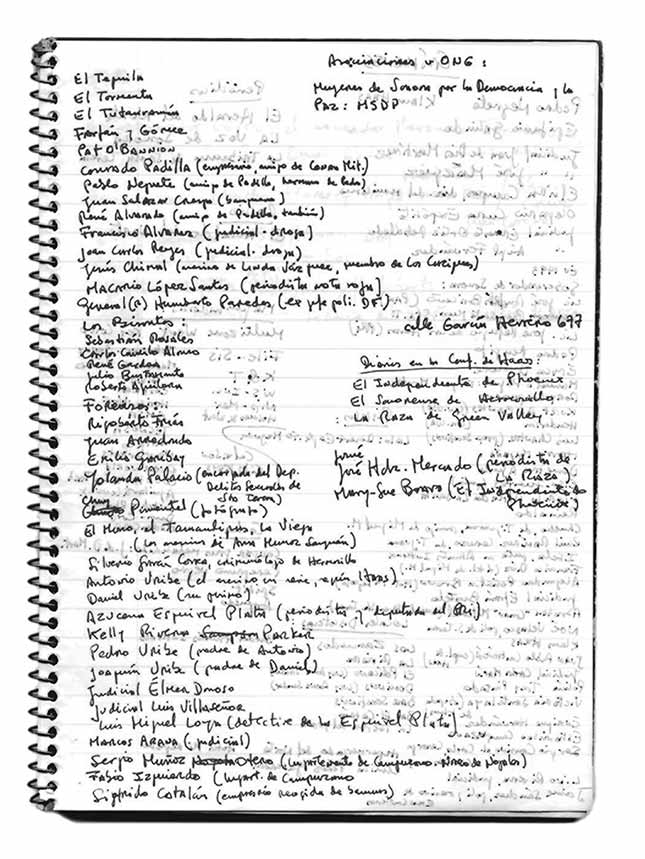 Asociaciones u ONG:
El Tequila
El Tormenta
El Tutanramón
Farfán y Gómez
Pat O'Bannion
Mujeres de Sonora por la Democracia y la
Paz: MSDP
Conrado Padilla (empresario, amigo de Conan Mit.)
Pablo Negrete (amigo de Padilla, hermano de Pedro)
Juan Salazar Crespo (Sanguano)
René Alvarado (amigo de Padilla, también)
Francisco Alvarez (judicial - droga)
Juan Carlos Reyes (judicial - droga)
Jesús Chimal (asesino de Linda Vázquez, miembro de Los Caciques)
Macario López Santos (periodista nota roja)
General (R) Humberto Paredes (ex jefe poli. DF)
Los Bisontes:
Sebastián Rosales
Carlos Camilo Alonso
René Gardea
Julio Bustamante
Roberto Aguilera
calle García Herrero 697
Diarios en la Conf. de Haas:
El Independiente de Phoenix
El Sonorense de Hermosillo
La Raza de Green Valley
Forenses:
Rigoberto Frías
Juan Arredondo
Emilio Garibay
Yolanda Palacio (encargada del Dep.
Delitos Sexuales de
Sta Teresa)
Chuy Pimentel (fotógrafo)
José
José Hdz. Mercado (periodista de
La Raza)
Mary-Sue Bravo (El Independiente de
Phoenix)
El Mono, el Tamaulipas, La Vieja
(Los asesinos de Ana Muñoz Sanjuán)
Silverio García Correa, criminólogo de Hermosillo
Antonio Uribe (el asesino en serie, según Haas)
Daniel Uribe (su primo)
Azucena Esquivel Plata (periodista y diputada del PRI)
Kelly Rivera Parker
Pedro Uribe (padre de Antonio)
Joaquín Uribe (padre de Daniel)
Judicial Elmer Donoso
Judicial Luis Villaseñor
Luis Miguel Loya (detective de la Esquivel Plata)
Marcos Arana (judicial)
Sergio Muñoz Otero (lugarteniente de Campuzano - Narco de Nogales)
Fabio Izquierdo (lugart. de Campuzano
Sigfrido Catalán (empresario recogida de basuras)